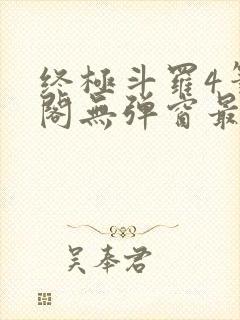 终極斗羅4筆
閣無彈窗最
吴奉君